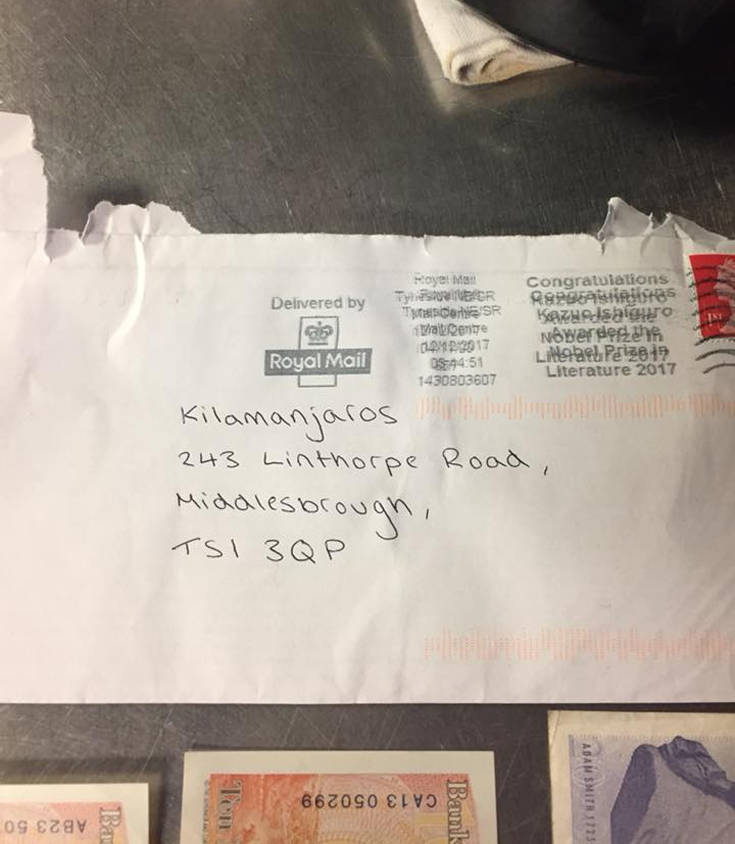 Delivered by
Royal Mail
Royal Mail
Tyneside NE/SR
Mail Centre
12/12/2017
1430803607
Congratulations
Kazuo Ishiguro
Awarded the
Nobel Prize in
Literature 2017
1ST
Kilamanjaros
243 Linthorpe Road,
Middlesbrough,
TS1 3QP
AB23 50
Ba
Ten
CA13 050299
Bank
ADAM SMITH 1723